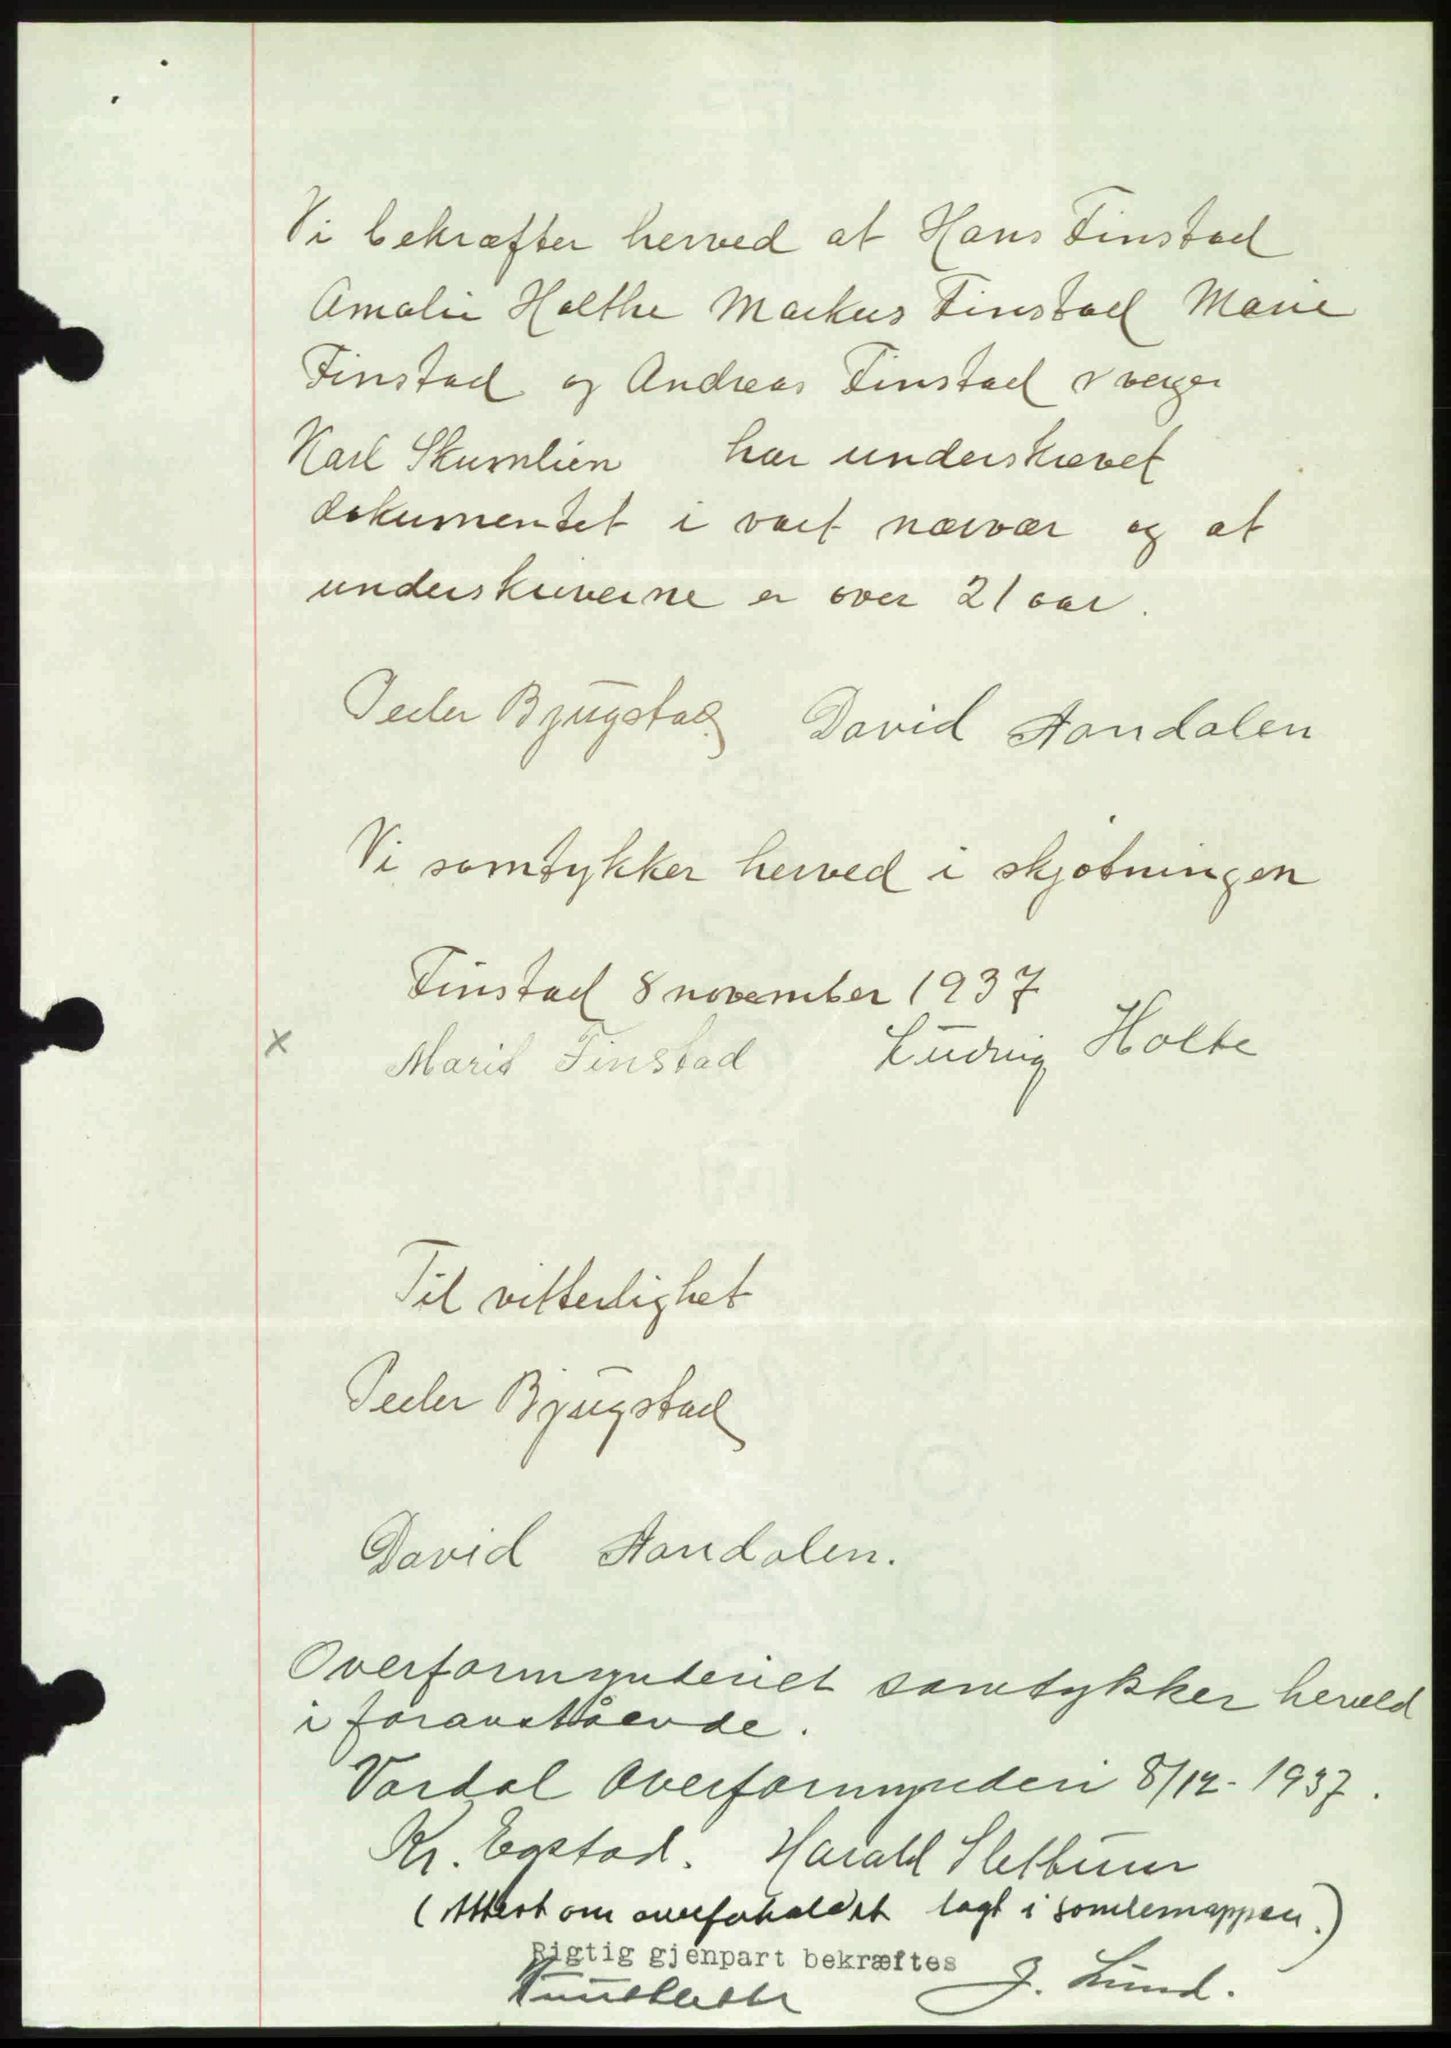 Vi bekræfter herved at Hans Finstad
Amalie Holthe Markus Finstad Marie
Finstad og Andreas Finstad v verge
Karl Skumlien har underskrevet
dokumentet i vart nærvær og at
underskriverne er over 21 aar.
Peder Bjugstad David Aandalen
Vi samtykker herved i skjøtningen
Finstad 8 november 1937
x Marit Finstad Ludvig Holte
Til vitterlighet
Peder Bjugstad
David Aandalen.
Overformynderiet samtykker herved
i foranstående.
Vardal Overformynderi 8/12-1937.
Kr. Egstad. Harald Sletbum
(Attest om lagt i samlemappen.)
Rigtig gjenpart bekræftes
J. Lund.